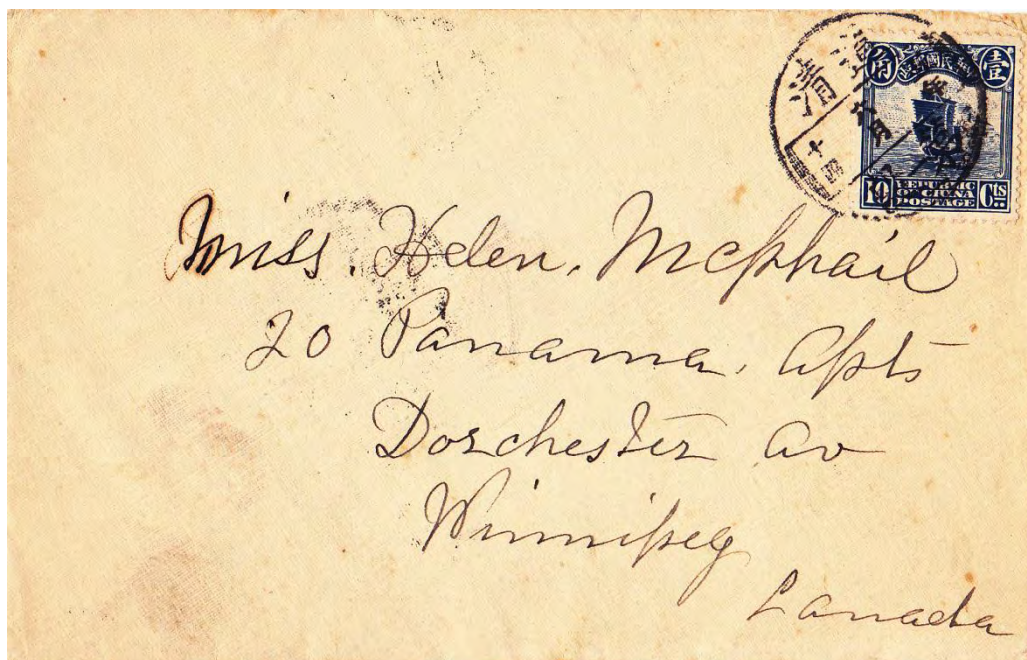 角 中華民國郵政 壹
10 REPUBLIC Cts
OF CHINA
POSTAGE
清
十
四
月
Miss. Helen. McPhail
20 Panama. Apts
Dorchester Av
Winnipeg
Canada